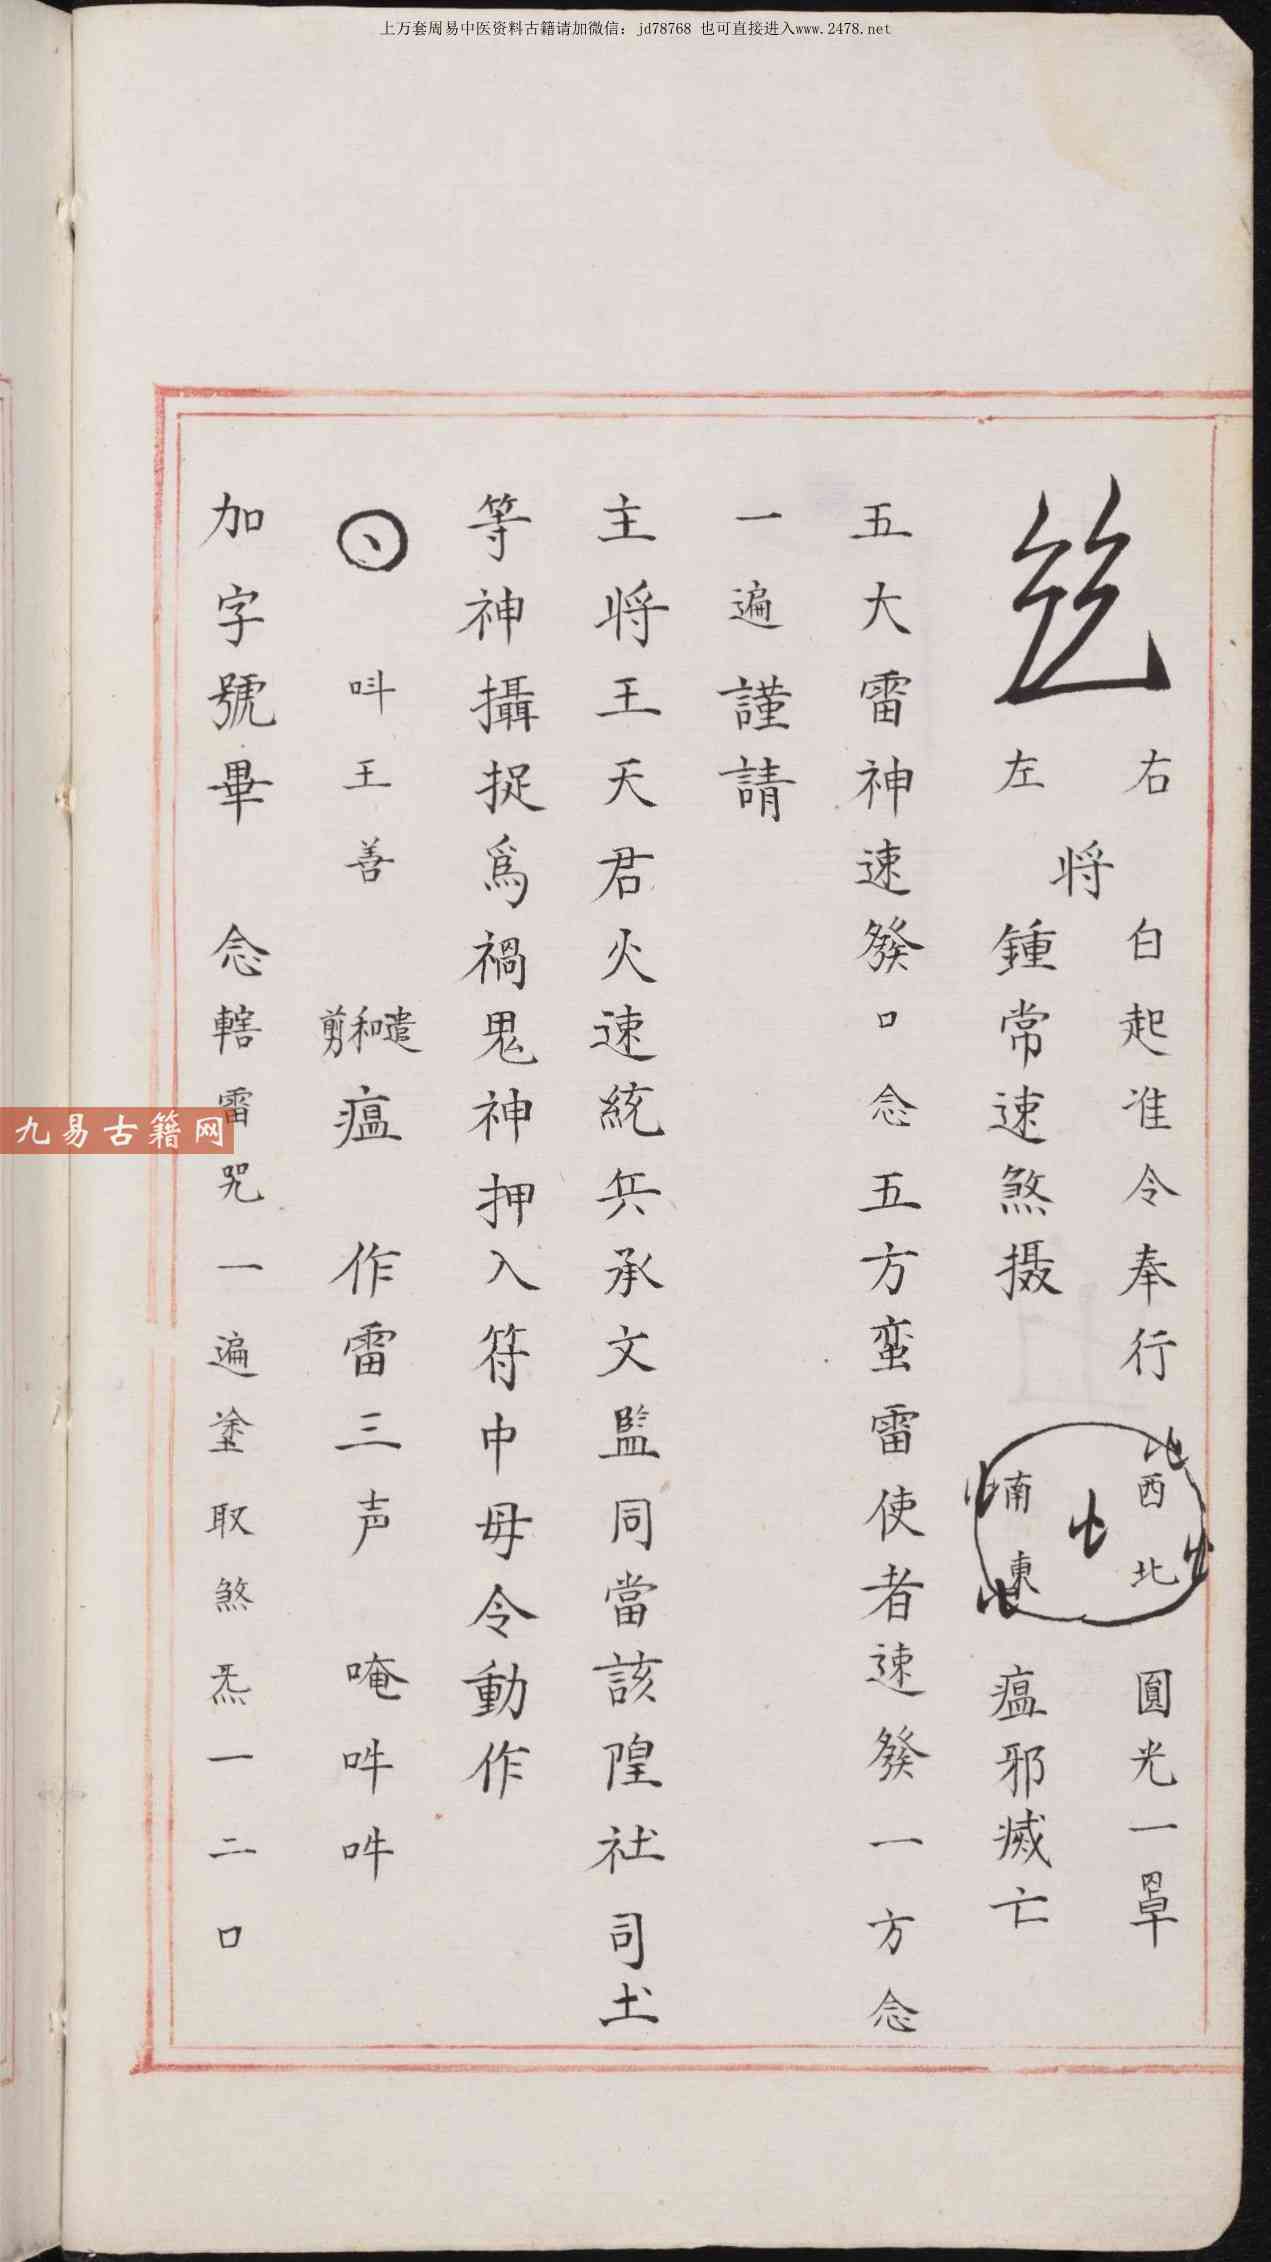 上万套周易中医资料古籍请加微信：jd78768 也可直接进入www.2478.net
右 白起准令奉行 西北 圓光一罩
将
左 鍾常速煞摄 南東 瘟邪滅亡
五大雷神速發口念五方蛮雷使者速發一方念
一遍謹請
主将王天君火速統兵承文監同當該隍社司土
等神攝捉爲禍鬼神押入符中毋令動作
呌王善 遣和剪瘟 作雷三声 唵吽吽
加字號畢 念轄雷咒一遍塗取煞炁一二口
九易古籍网